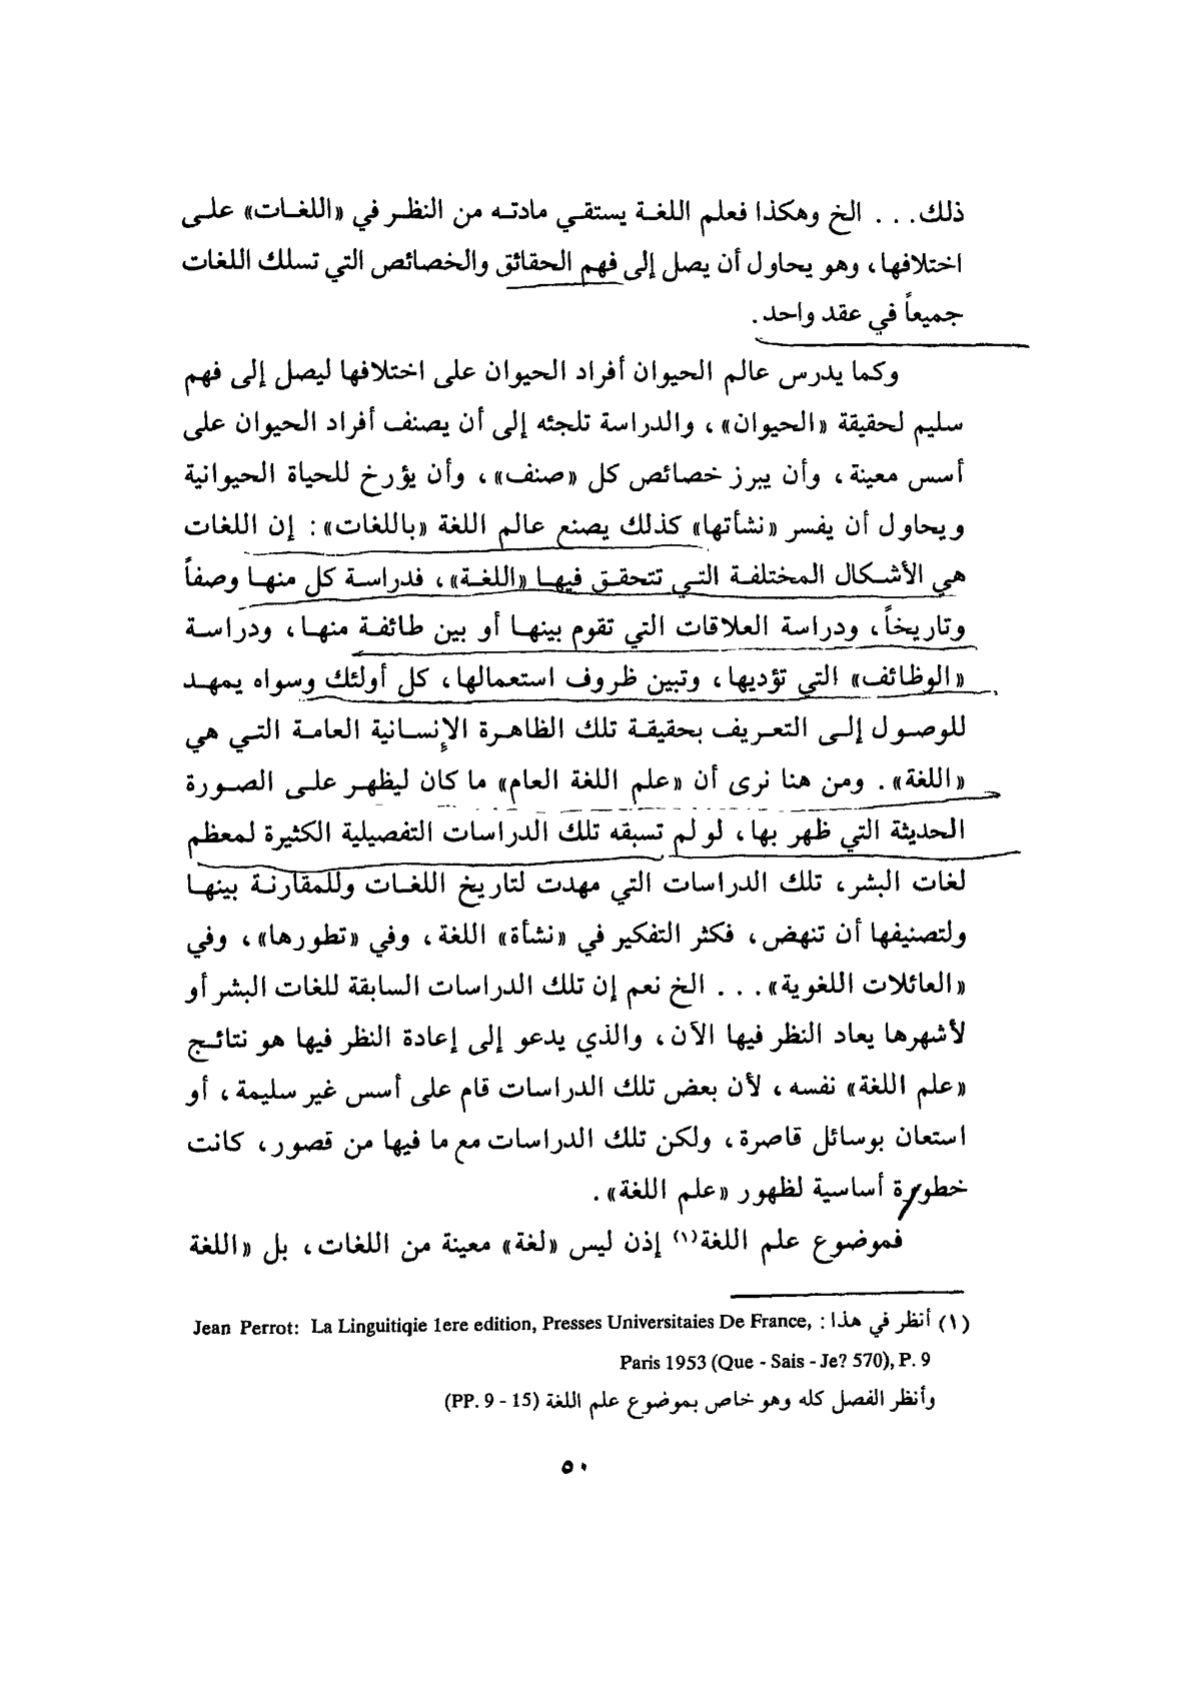 ذلك... الخ وهكذا فعلم اللغة يستقي مادته من النظر في «اللغات» على
اختلافها، وهو يحاول أن يصل إلى فهم الحقائق والخصائص التي تسلك اللغات
جميعاً في عقد واحد.
وكما يدرس عالم الحيوان أفراد الحيوان على اختلافها ليصل إلى فهم
سليم لحقيقة «الحيوان»، والدراسة تلجئه إلى أن يصنف أفراد الحيوان على
أسس معينة، وأن يبرز خصائص كل «صنف»، وأن يؤرخ للحياة الحيوانية
ويحاول أن يفسر «نشأتها» كذلك يصنع عالم اللغة «باللغات»: إن اللغات
هي الأشكال المختلفة التي تتحقق فيها «اللغة»، فدراسة كل منها وصفاً
وتاريخاً، ودراسة العلاقات التي تقوم بينها أو بين طائفة منها، ودراسة
«الوظائف» التي تؤديها، وتبين ظروف استعمالها، كل أولئك وسواه يمهد
للوصول إلى التعريف بحقيقة تلك الظاهرة الإنسانية العامة التي هي
«اللغة». ومن هنا نرى أن «علم اللغة العام» ما كان ليظهر على الصورة
الحديثة التي ظهر بها، لو لم تسبقه تلك الدراسات التفصيلية الكثيرة لمعظم
لغات البشر، تلك الدراسات التي مهدت لتاريخ اللغات وللمقارنة بينها
ولتصنيفها أن تنهض، فكثر التفكير في «نشأة» اللغة، وفي «تطورها»، وفي
«العائلات اللغوية»... الخ نعم إن تلك الدراسات السابقة للغات البشر أو
لأشهرها يعاد النظر فيها الآن، والذي يدعو إلى إعادة النظر فيها هو نتائج
«علم اللغة» نفسه، لأن بعض تلك الدراسات قام على أسس غير سليمة، أو
استعان بوسائل قاصرة، ولكن تلك الدراسات مع ما فيها من قصور، كانت
خطورة أساسية لظهور «علم اللغة».
فموضوع علم اللغة(١) إذن ليس «لغة» معينة من اللغات، بل «اللغة
(١) أنظر في هذا: Jean Perrot: La Linguitiqie 1ere edition, Presses Universitaies De France,
Paris 1953 (Que - Sais - Je? 570), P. 9
وأنظر الفصل كله وهو خاص بموضوع علم اللغة (PP. 9 - 15)
٥٠